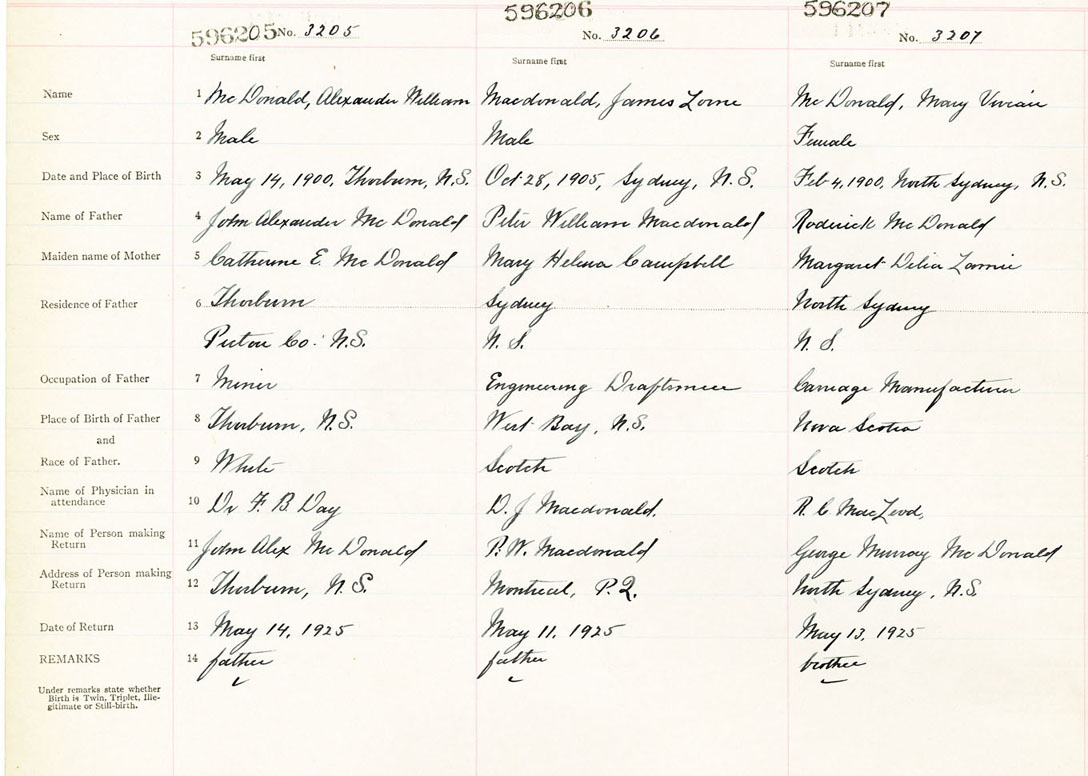 596205 No. 3205
596206
No. 3206
596207
No. 3207
Surname first Surname first Surname first
Name 1 Mc Donald, Alexander William Macdonald, James Lorne Mc Donald, Mary Vivian
Sex 2 Male Male Female
Date and Place of Birth 3 May 14, 1900, Thorburn, N.S. Oct 28, 1905, Sydney, N.S. Feb 4, 1900, North Sydney, N.S.
Name of Father 4 John Alexander Mc Donald Peter William Macdonald Roderick Mc Donald
Maiden name of Mother 5 Catherine E. Mc Donald Mary Helena Campbell Margaret Delia
Residence of Father 6 Thorburn Sydney North Sydney
Pictou Co. N.S. N.S. N.S.
Occupation of Father 7 Miner Engineering Draftsman Carriage Manufacturer
Place of Birth of Father 8 Thorburn, N.S. West Bay, N.S. Nova Scotia
and
Race of Father. 9 White Scotch Scotch
Name of Physician in
attendance 10 Dr F. B. Day D. J Macdonald. R. C. MacLeod,
Name of Person making
Return 11 John Alex Mc Donald P. W. Macdonald George Murray Mc Donald
Address of Person making
Return 12 Thorburn, N.S. Montreal, P.Q. North Sydney, N.S.
Date of Return 13 May 14, 1925 May 11, 1925 May 13, 1925
REMARKS 14 father father brother
Under remarks state whether
Birth is Twin, Triplet, Ille-
gitimate or Still-birth.